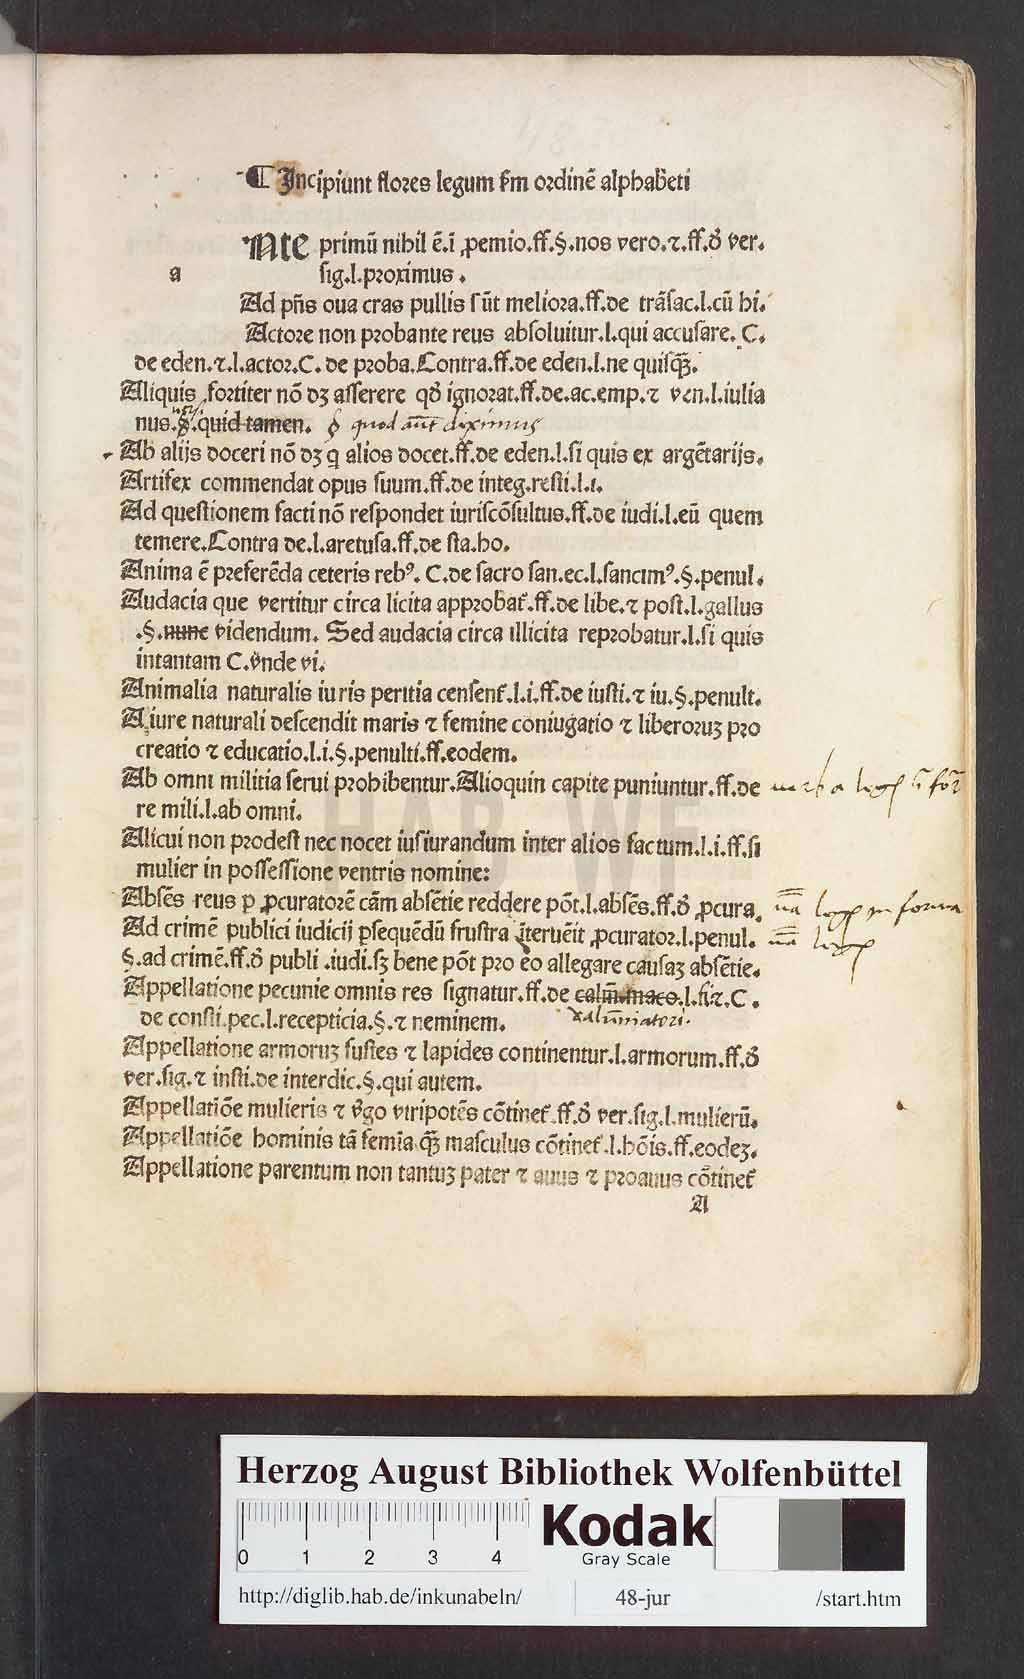 ¶ Incipiunt flores legum ẜm ordinē alphabeti
Nte primū nihil ē.ī ꝓemio.ff.§.nos vero.⁊.ff.ď ver.
a sig.l.proximus.
Ad pñs oua cras pullis sūt meliora.ff.de trāsac.l.cū hi.
Actore non probante reus absoluitur.l.qui accusare. C.
de eden.⁊.l.actor.C. de proba.Contra.ff.de eden.l.ne quisꝗ̈.
Aliquis fortiter nō dꝫ asserere qď ignorat.ff.de.ac.emp.⁊ ven.l.iulia
nus.§.quid tamen. § quod aūt diximus
Ab alijs doceri nō dꝫ q alios docet.ff.de eden.l.si quis ex argētarijs.
Artifex commendat opus suum.ff.de integ.resti.l.i.
Ad questionem facti nō respondet iuriscōsultus.ff.de iudi.l.eū quem
temere.Contra de.l.aretusa.ff.de sta.ho.
Anima ē preferēda ceteris rebꝰ. C.de sacro san.ec.l.sancimꝰ.§.penul.
Audacia que vertitur circa licita approbat᷑.ff.de libe.⁊ post.l.gallus
.§.nunc videndum. Sed audacia circa illicita reprobatur.l.si quis
intantam C.vnde vi.
Animalia naturalis iuris peritia censent᷑.l.i.ff.de iusti.⁊ iu.§.penult.
A iure naturali descendit maris ⁊ femine coniugatio ⁊ liberoruꝫ pro
creatio ⁊ educatio.l.i.§.penulti.ff.eodem.
Ab omni militia serui prohibentur.Alioquin capite puniuntur.ff.de
re mili.l.ab omni.
Alicui non prodest nec nocet iusiurandum inter alios factum.l.i.ff.si
mulier in possessione ventris nomine:
Absēs reus p ꝓcuratorē cām absētie reddere pōt.l.absēs.ff.ď ꝓcura.
Ad crimē publici iudicij ꝑsequēdū frustra īteruēit ꝓcurator.l.penul.
§.ad crimē.ff.ď publi.iudi.sꝫ bene pōt pro eo allegare causaꝫ absētie.
Appellatione pecunie omnis res signatur.ff.de calūn.maco.l.fi⁊.C.
de consti.pec.l.recepticia.§.⁊ neminem. calūniatori.
Appellatione armoruꝫ fustes ⁊ lapides continentur.l.armorum.ff.ď
ver.sig.⁊ insti.de interdic.§.qui autem.
Appellatiōe mulieris ⁊ v̇go viripotēs cōtinet᷑.ff.ď ver.sig.l.mulierū.
Appellatiōe hominis tā femīa ꝗ̈ masculus cōtinet᷑.l.hōis.ff.eodeꝫ.
Appellatione parentum non tantuꝫ pater ⁊ auus ⁊ proauus cōtinet᷑
A
HAB WF
Herzog August Bibliothek Wolfenbüttel
0 1 2 3 4
Kodak
Gray Scale
http://diglib.hab.de/inkunabeln/ 48-jur /start.htm